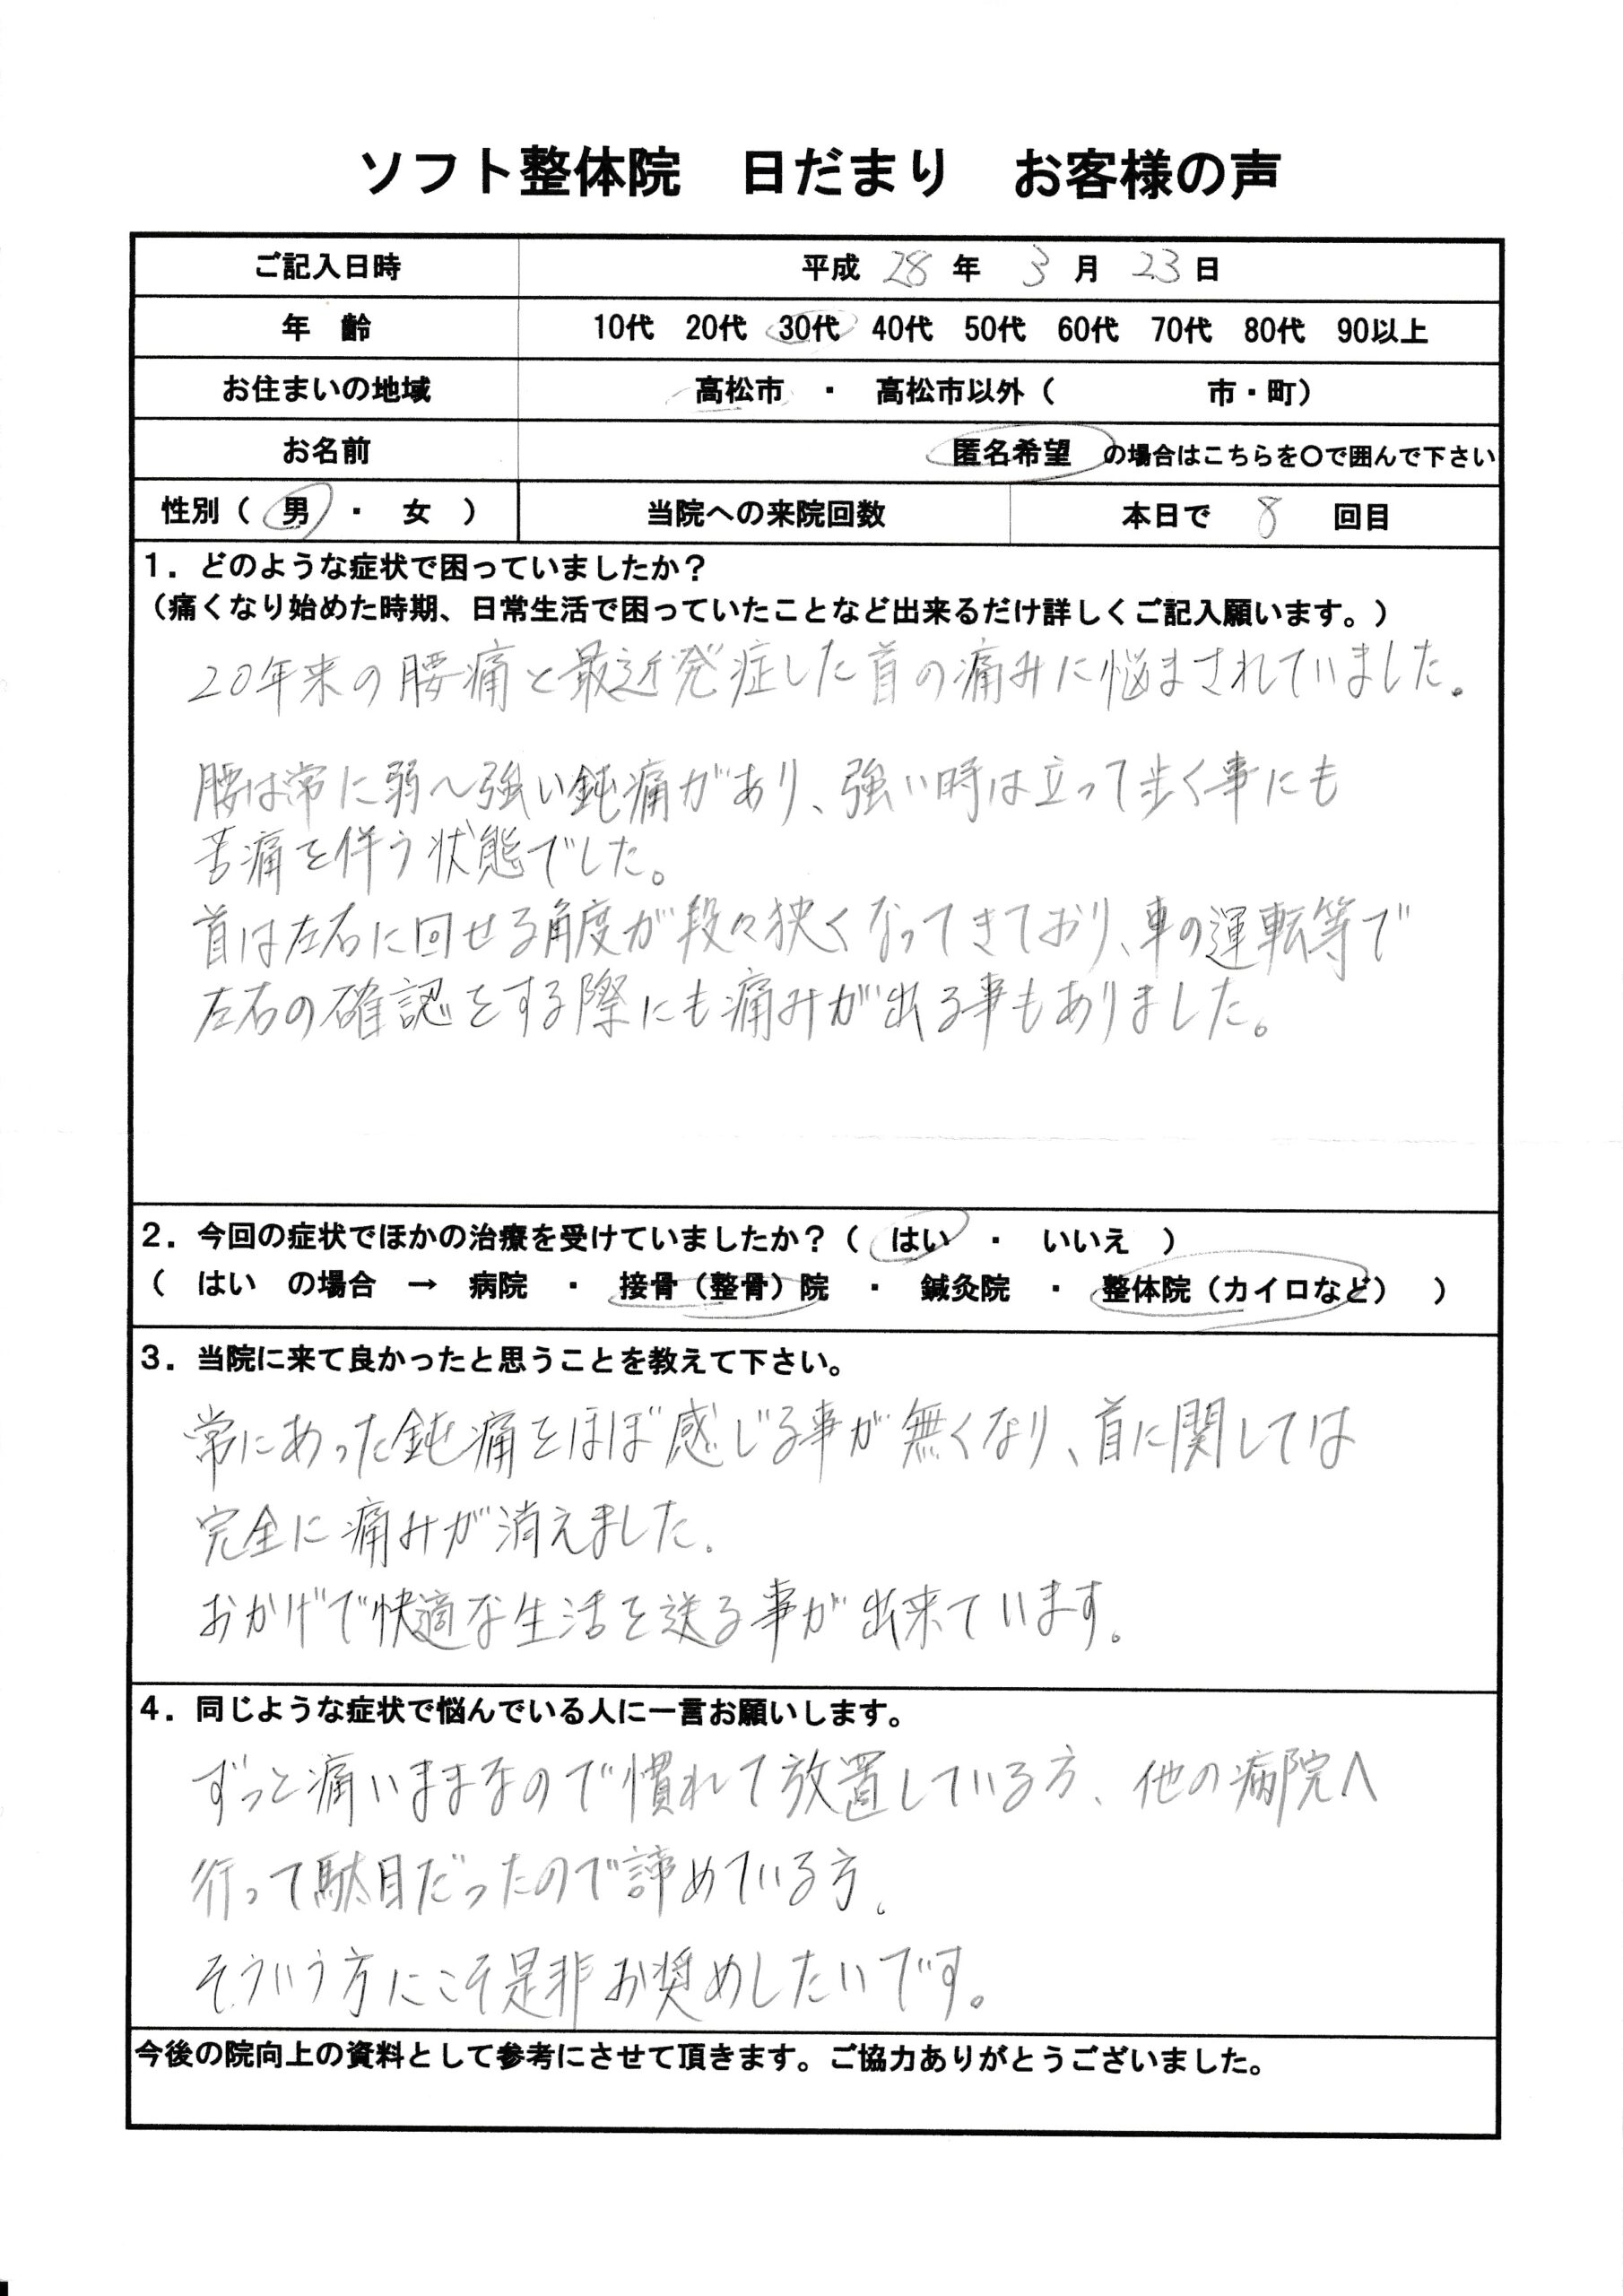 ソフト整体院　日だまり　お客様の声
ご記入日時　平成 28 年 3 月 23 日
年　齢　10代　20代　30代　40代　50代　60代　70代　80代　90以上
お住まいの地域　高松市　・　高松市以外（　　　　　市・町）
お名前　匿名希望　の場合はこちらを〇で囲んで下さい
性別（　男　・　女　）　当院への来院回数　本日で　8　回目
1．どのような症状で困っていましたか？
（痛くなり始めた時期、日常生活で困っていたことなど出来るだけ詳しくご記入願います。）
20年来の腰痛と最近発症した首の痛みに悩まされていました。
腰は常に弱～強い鈍痛があり、強い時は立って歩く事にも
苦痛を伴う状態でした。
首は左右に回せる角度が段々狭くなってきており、車の運転等で
左右の確認をする際にも痛みが出る事もありました。
2．今回の症状でほかの治療を受けていましたか？（　はい　・　いいえ　）
（　はい　の場合　→　病院　・　接骨（整骨）院　・　鍼灸院　・　整体院（カイロなど）　）
3．当院に来て良かったと思うことを教えて下さい。
常にあった鈍痛をほぼ感じる事が無くなり、首に関しては
完全に痛みが消えました。
おかげで快適な生活を送る事が出来ています。
4．同じような症状で悩んでいる人に一言お願いします。
ずっと痛いままなので慣れて放置している方、他の病院へ
行って駄目だったので諦めている方。
そういう方にこそ是非お奨めしたいです。
今後の院向上の資料として参考にさせて頂きます。ご協力ありがとうございました。